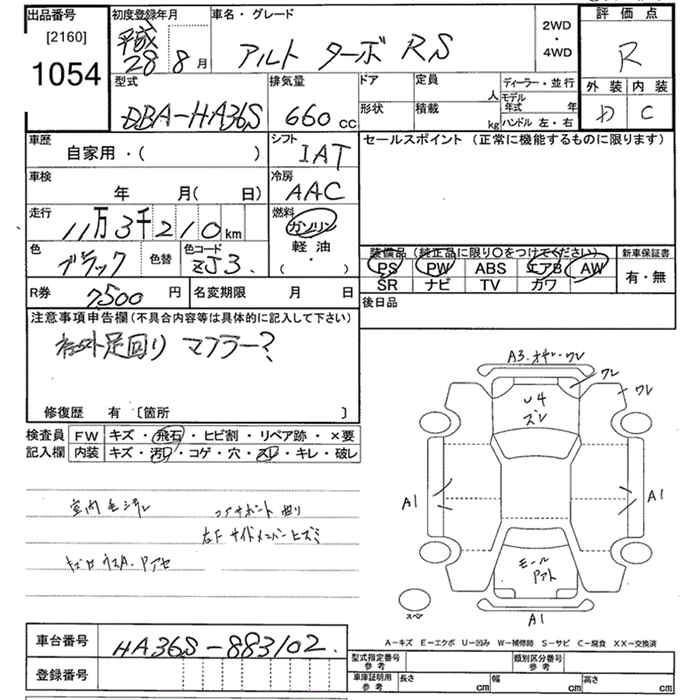 出品番号
[2160]
1054
初度登録年月
平成
28 8 月
車名・グレード
アルト ターボRS
2WD
・
4WD
評価点
R
外装 内装
D C
型式
DBA-HA36S
排気量
660 cc
ドア
形状
定員
人
積載
kg
ディーラー・並行
モデル年式 年
ハンドル 左・右
車歴
自家用・( )
シフト
IAT
セールスポイント (正常に機能するものに限ります)
車検
年 月( 日)
冷房
AAC
走行
11万3千210 km
燃料
ガソリン
軽油
・( )
色
ブラック
色替
色コード
ZJ3.
装備品 (純正品に限り○をつけてください)
PS PW ABS エアB AW
SR ナビ TV カワ
新車保証書
有・無
R券
7500 円
名変期限 月 日
後日品
注意事項申告欄(不具合内容等は具体的に記入して下さい)
足回り マフラー?
修復歴 有 [箇所 ]
検査員
記入欄
FW キズ・飛石・ヒビ割・リペア跡・×要
内装 キズ・汚レ・コゲ・穴・スレ・キレ・破レ
A3.
ワレ
ワレ
U4
ズレ
A1
A1
モール
A1
スペア
室内
コアサポート 曲り
右F サイドメンバーヒズミ
A-キズ E-エクボ U-凹み W-補修跡 S-サビ C-腐食 XX-交換済
車台番号
HA36S-883102
登録番号
型式指定番号
参考
類別区分番号
参考
車庫証明用
参考
長さ cm
幅 cm
高さ cm